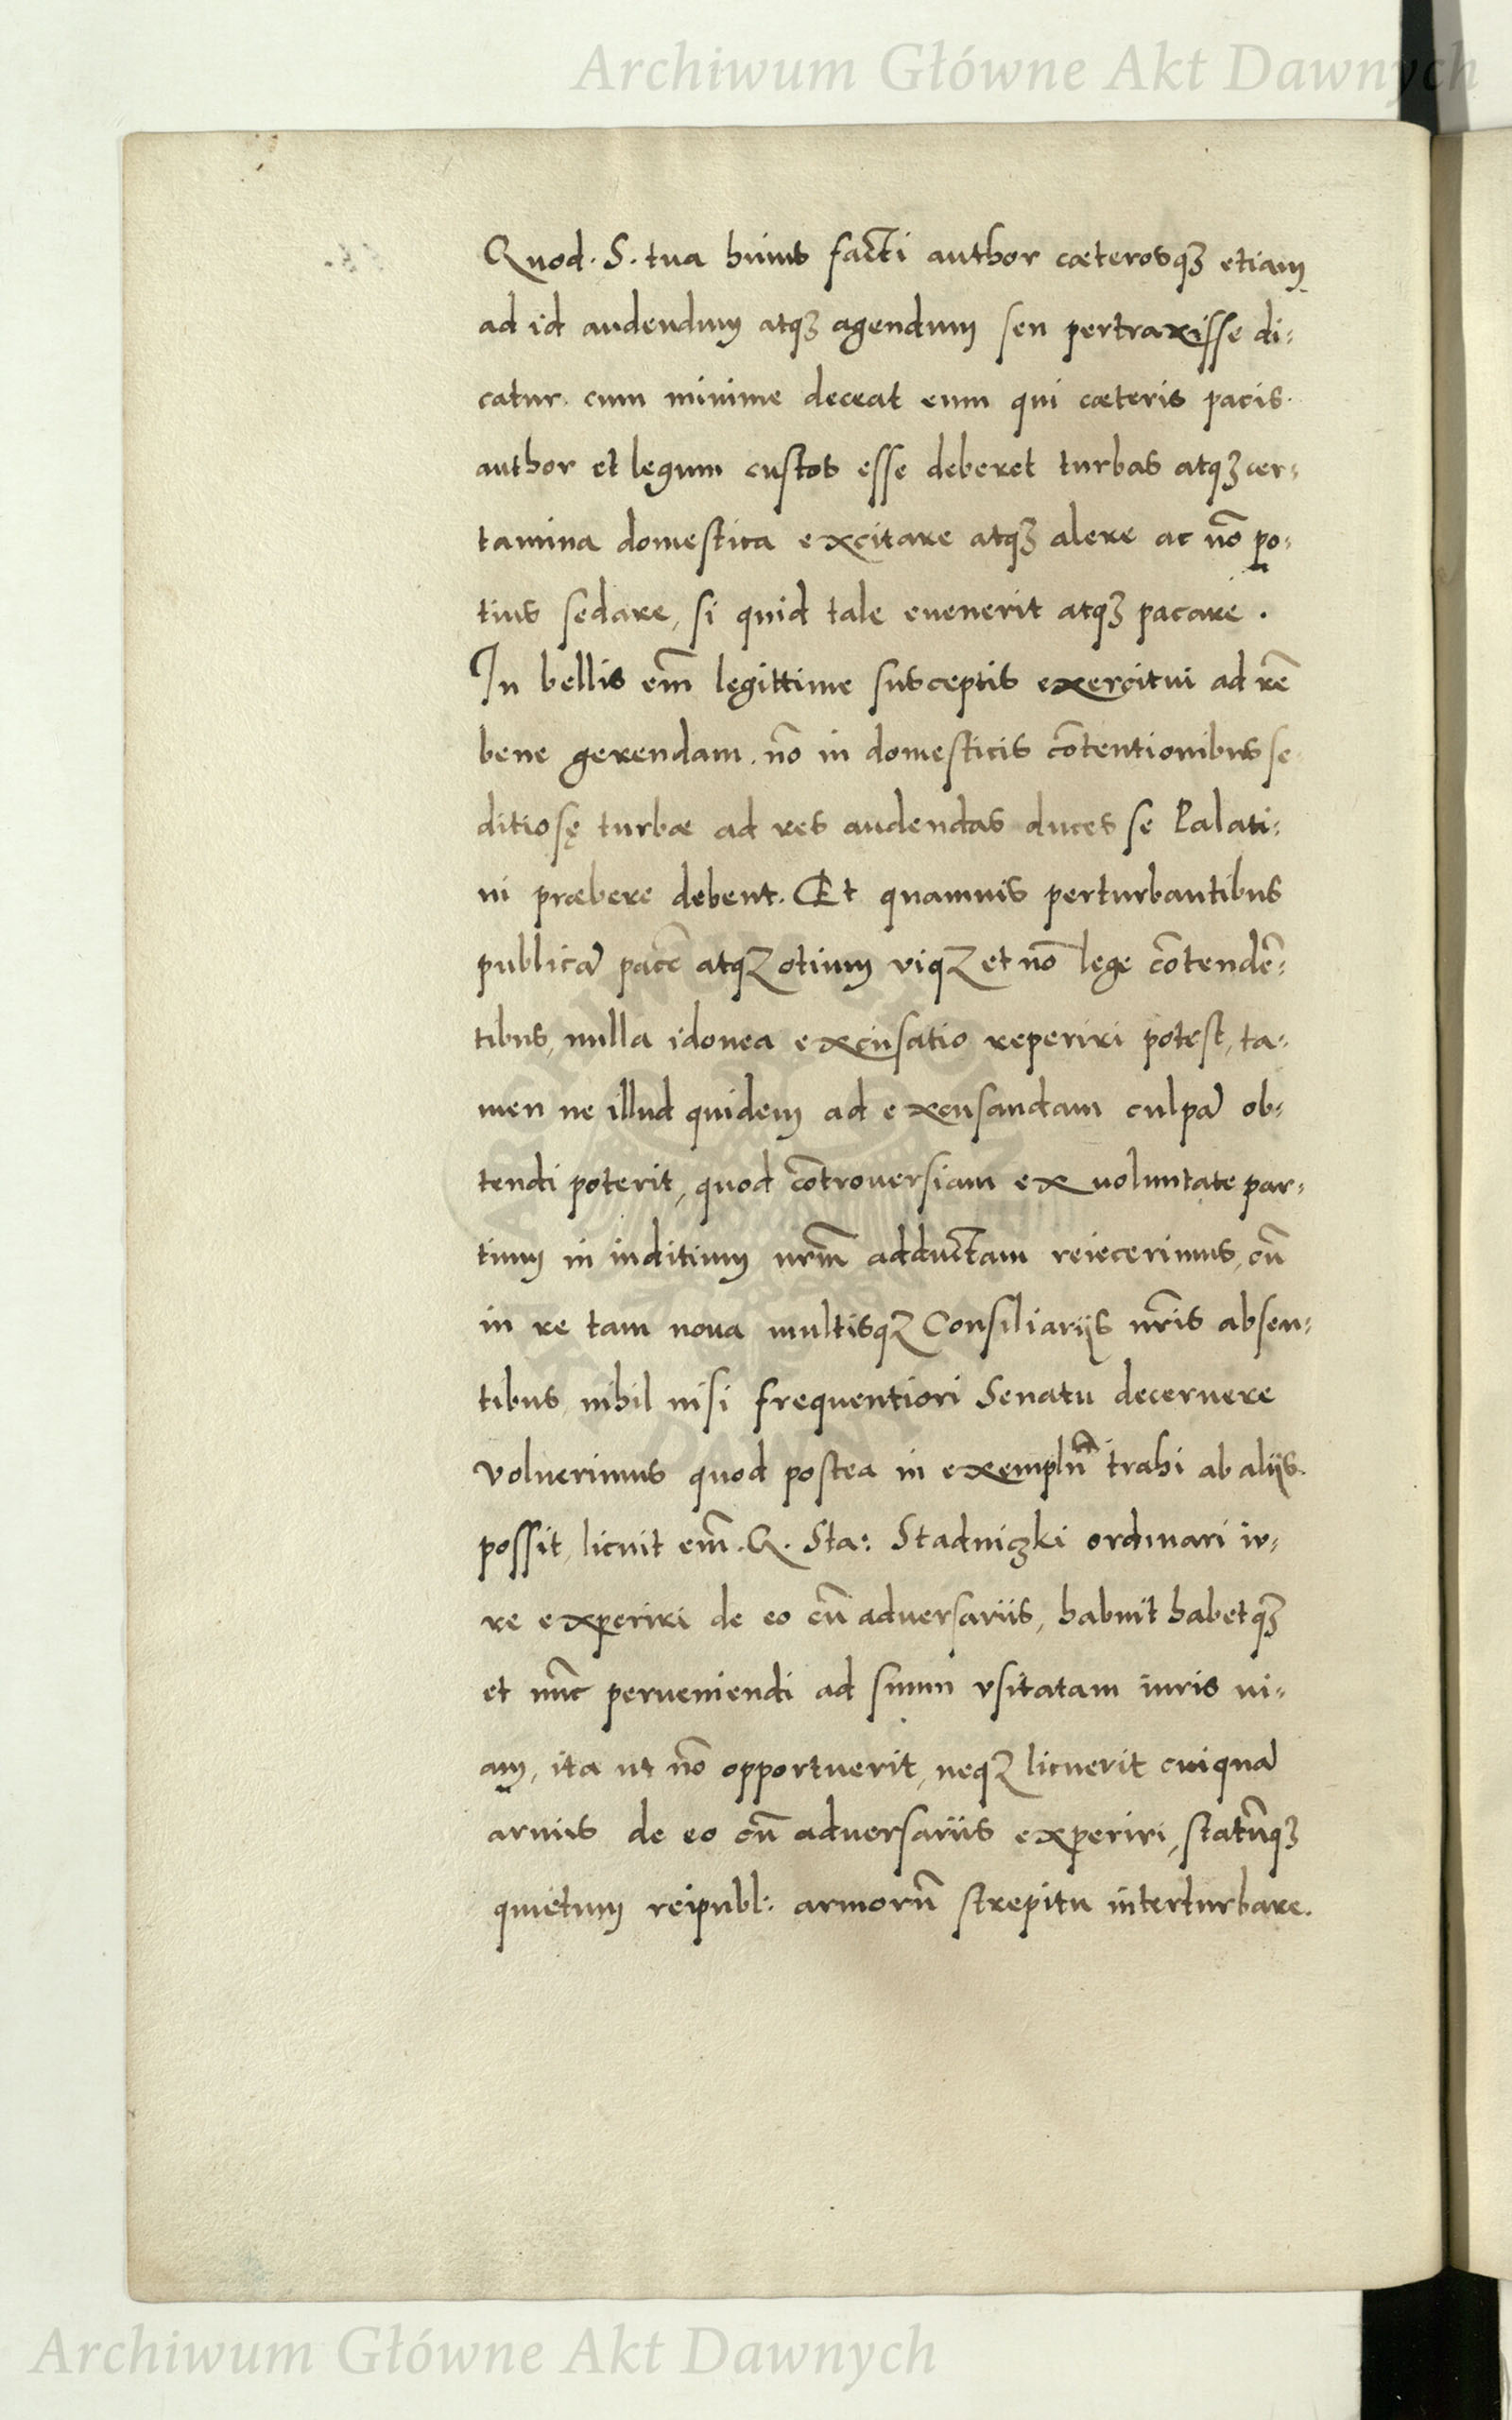 Archiwum Główne Akt Dawnych
Quod. S. tua huius facti author cæterosqȝ etiam
ad id audendum atqȝ agendum seu pertraxisse di:
catur. cum minime deceat eum qui cæteris pacis.
author et legum custos esse deberet turbas atqȝ cer:
tamina domestica excitare atqȝ alere ac nō po:
tius sedare, si quid tale evenerit atqȝ pacare.
In bellis em̄ legittime susceptis exercitui ad rē
bene gerendam. nō in domesticis cōtentionibus se
ditiosę turbæ ad res audendas duces se Palati:
ni præbere debent. Et quamuis perturbantibus
publicā pacē atqȝ otium viqȝ et nō lege cōtendē:
tibus, nulla idonea excusatio reperiri potest, ta:
men ne illud quidem ad excusandam culpā ob:
tendi poterit, quod cōtrouersiam ex uoluntate par:
tium in iuditium nrm̄ adductam reiecerimus, cū
in re tam noua multisqȝ Consiliarijs nr̄is absen:
tibus, nihil nisi frequentiori Senatu decernere
voluerimus quod postea in exemplū trahi ab alijs.
possit, licuit em̄. G. Sta: Stadniczki ordinari iu:
re experiri de eo cū adversariis, habuit habetqȝ
et nūc perueniendi ad suum vsitatam iuris ui:
am, ita ut nō opportuerit, neqȝ licuerit cuiquā
armis de eo cū adversariis experiri, statūqȝ
quietum reipubl: armorū strepitu interturbare.
Archiwum Główne Akt Dawnych